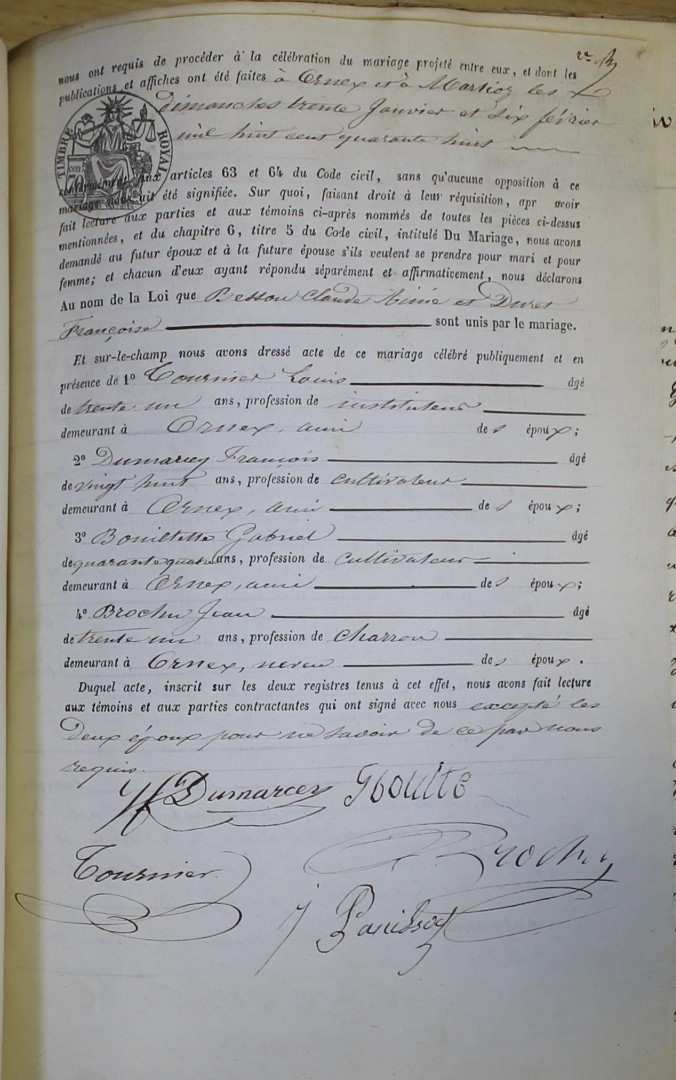 nous ont requis de procéder à la célébration du mariage projeté entre eux, et dont les
publications et affiches ont été faites à Ornex et à les
Dimanches trente Janvier et six février
mil huit cent quarante huit
TIMBRE ROYAL
conformément aux articles 63 et 64 du Code civil, sans qu'aucune opposition à ce
mariage nous ait été signifiée. Sur quoi, faisant droit à leur réquisition, apr avoir
fait lecture aux parties et aux témoins ci-après nommés de toutes les pièces ci-dessus
mentionnées, et du chapitre 6, titre 5 du Code civil, intitulé Du Mariage, nous avons
demandé au futur époux et à la future épouse s'ils veulent se prendre pour mari et pour
femme; et chacun d'eux ayant répondu séparément et affirmativement, nous déclarons
Au nom de la Loi que Besson Claude Aimé et Duret
Françoise sont unis par le mariage.
Et sur-le-champ nous avons dressé acte de ce mariage célébré publiquement et en
présence de 1º Tournier Louis âgé
de trente un ans, profession de instituteur
demeurant à Ornex, ami des époux;
2º Dumarcey François âgé
de vingt huit ans, profession de cultivateur
demeurant à Ornex, ami des époux;
3º Gabriel âgé
de quarante quatre ans, profession de cultivateur
demeurant à Ornex, ami des époux;
4º Brochu Jean âgé
de trente un ans, profession de charron
demeurant à Ornex, neveu des époux.
Duquel acte, inscrit sur les deux registres tenus à cet effet, nous avons fait lecture
aux témoins et aux parties contractantes qui ont signé avec nous excepté les
Deux époux pour ne savoir de ce par nous
requis.
Dumarcey
Tournier